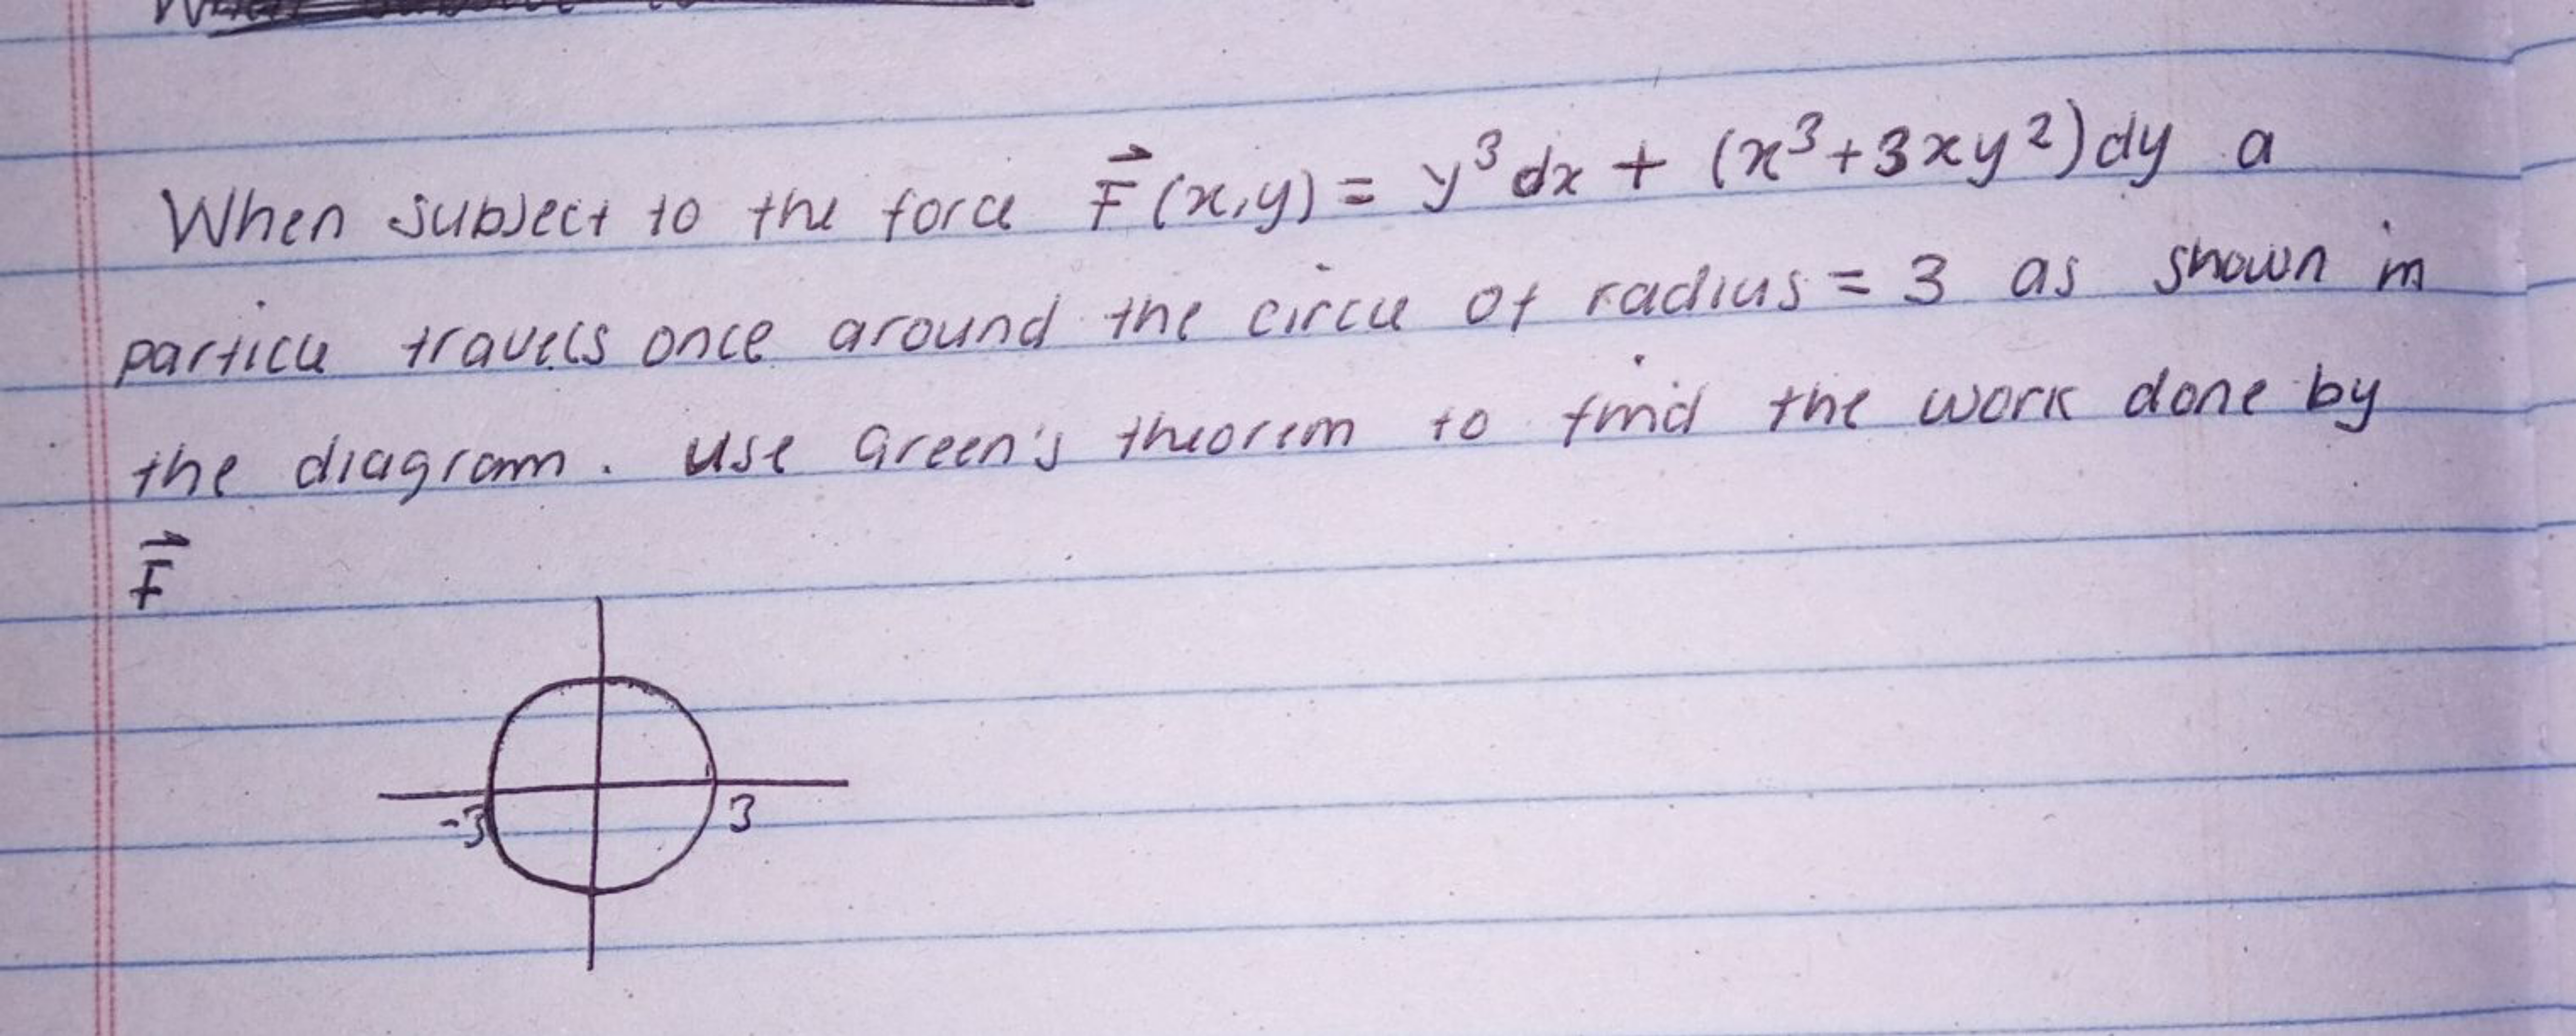 When subject to the force F⃗(x,y) = y³dx + (x³+3xy²)dy a
particle travels once around the circle of radius = 3 as shown in
the diagram. Use Green's theorem to find the work done by
F⃗
-3 3